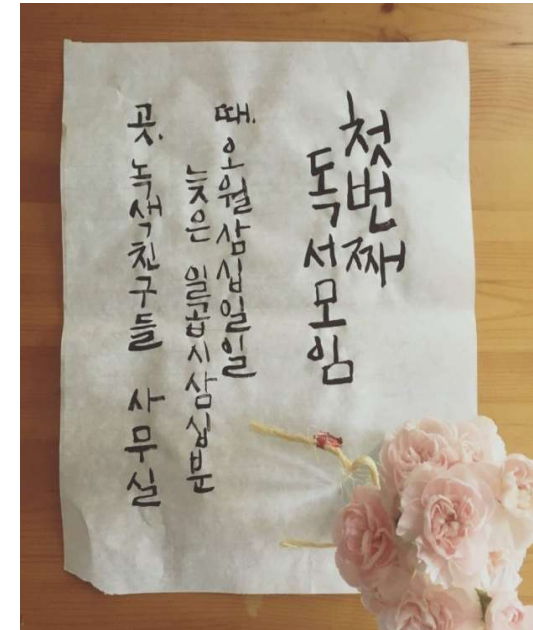 첫번째
독서모임
때. 오월삼십일일
늦은 일곱시삼십분
곳. 녹색친구들 사무실